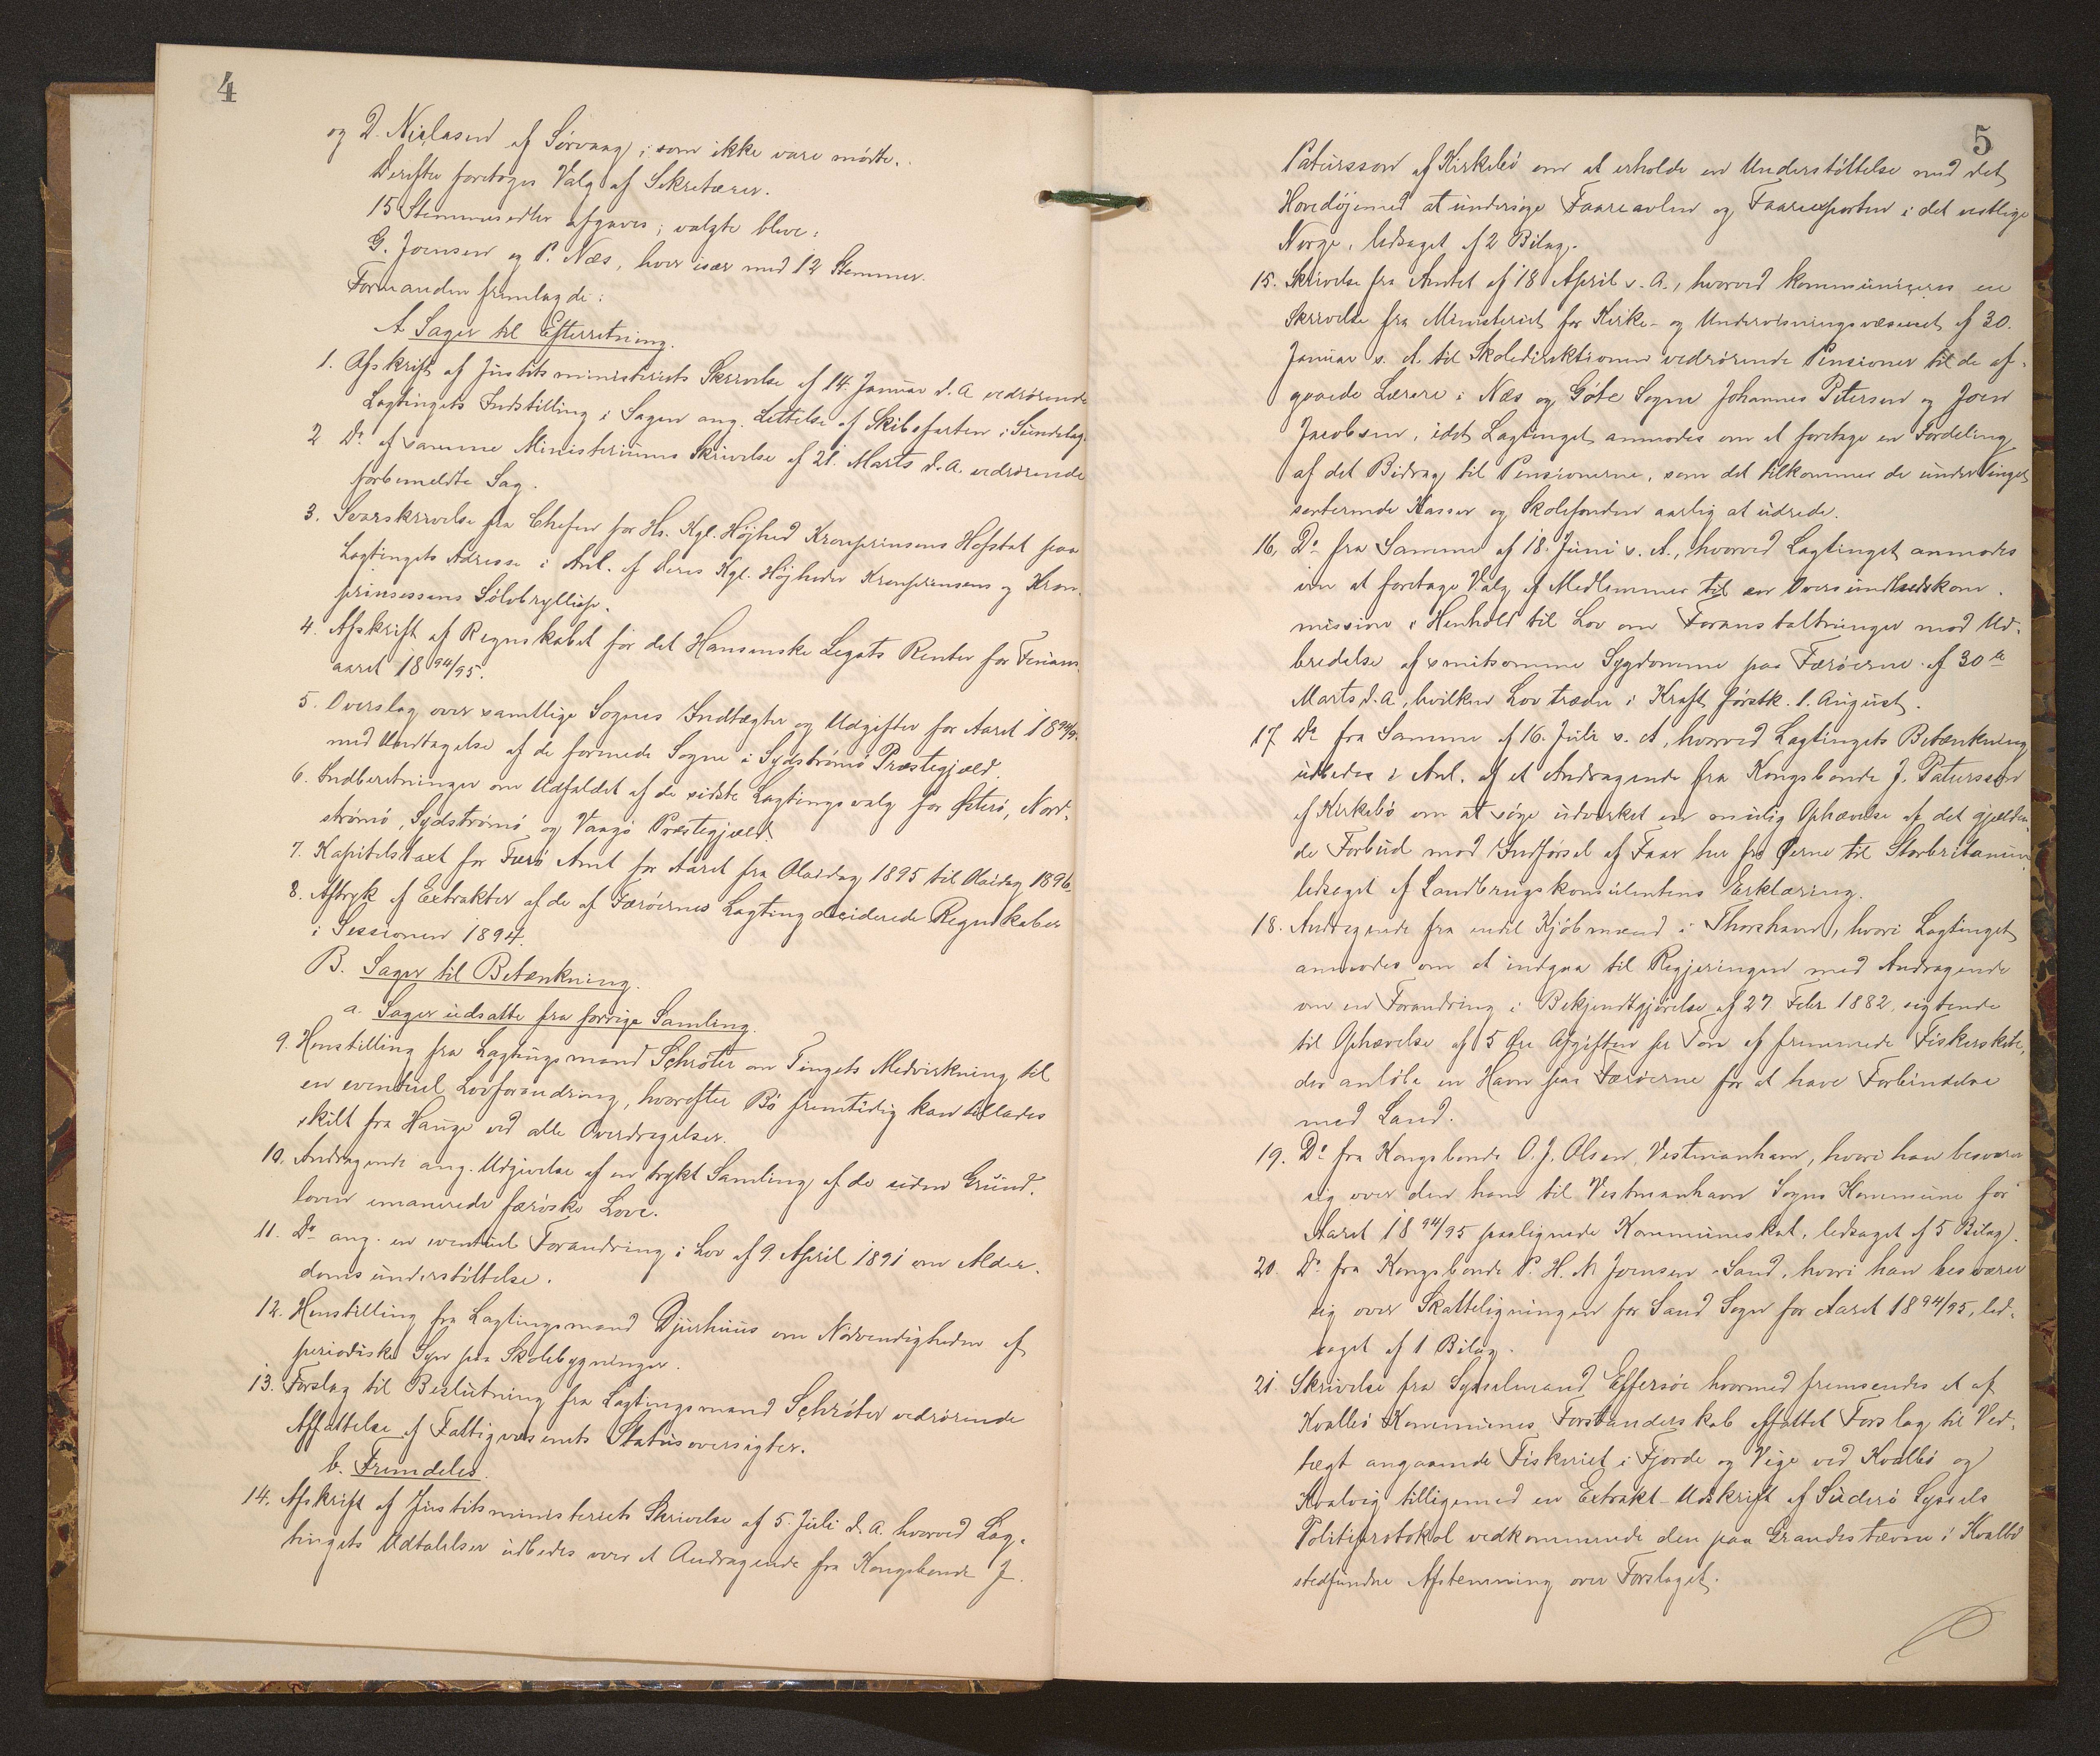 4
og D. Niclasen af Sørvaag, som ikke vare mødte.
Derefter foretoges Valg af Sekretærer.
15 Stemmesedler afgaves; valgte bleve:
G. Joensen og P. Næs, hver især med 12 Stemmer.
Formanden fremlagde:
A Sager til Efterretning.
1. Afskrift af Justitsministeriets Skrivelse af 14. Januar d. A. vedrørende
Lagtingets Indstilling i Sagen ang. Lettelse af Skibsfarten i Sundelag.
2 Do af samme Ministeriums Skrivelse af 21. Marts d. A. vedrørende
forbemeldte Sag.
3. Svarskrivelse fra Chefen for Hs. Kgl. Højhed Kronprinsens Hofstat paa
Lagtingets Adresse i Anl. af Deres Kgl. Højheder Kronprinsens og Kron-
prinsessens Sølvbryllup.
4. Afskrift af Regnskabet for det Hansenske Legats Renter for Finans-
aaret 18 94/95.
5. Overslag over samtlige Sognes Indtægter og Udgifter for Aaret 18 94/95
med Undtagelse af de formede Sogne i Sydstrømø Præstegjæld.
6. Indberetninger om Udfaldet af de sidste Lagtingsvalg for Østerø, Nord-
strømø, Sydstrømø og Vaagø Præstegjæld.
7. Kapitelstaxt for Færø Amt for Aaret fra Olaidag 1895 til Olaidag 1896.
8. Aftryk af Extrakter af de af Færøernes Lagting deciderede Regnskaber
i Sessionen 1894.
B. Sager til Betænkning.
a. Sager udsatte fra forrige Samling.
9. Henstilling fra Lagtingsmand Schrøter om Tingets Medvirkning til
en eventuel Lovforandring, hvorefter Bø fremtidig kan tillades
skilt fra Hauge ved alle Overdragelser.
10. Andragende ang. Udgivelse af en trykt Samling af de siden Grund-
loven emanerede færøske Love.
11. Do ang. en eventuel Forandring i Lov af 9. April 1891 om Alder-
domsunderstøttelse.
12. Henstilling fra Lagtingsmand Djurhuus om Nødvendigheden af
periodiske Syn paa Skolebygninger.
13. Forslag til Beslutning fra Lagtingsmand Schrøter vedrørende
Affattelse af Fattigvæsenets Statusoversigter.
b. Fremdeles.
14. Afskrift af Justitsministeriets Skrivelse af 5. Juli d. A. hvorved Lag-
tingets Udtalelser udbedes over et Andragende fra Kongsbonde J.
5
Patursson af Kirkebø om at erholde en Understøttelse med det
Hovedøjemed at undersøge Faareavlen og Faareexporten i det vestlige
Norge, ledsaget af 2 Bilag.
15. Skrivelse fra Amtet af 18 April s. A., hvorved kommuniceres en
Skrivelse fra Ministeriet for Kirke- og Undervisningsvæsenet af 30.
Januar s. A. til Skoledirektionen vedrørende Pensioner til de af-
gaaede Lærere i Næs og Gøte Sogne Johannes Petersen og Joen
Jacobsen, idet Lagtinget anmodes om at foretage en Fordeling
af det Bidrag til Pensionerne, som det tilkommer de under Tinget
sorterende Kasser og Skolefonden aarlig at udrede.
16. Do fra Samme af 18. Juni s. A., hvorved Lagtinget anmodes
om at foretage Valg af Medlemmer til en Oversundhedskom-
mission i Henhold til Lov om Foranstaltninger mod Ud-
bredelse af smitsomme Sygdomme paa Færøerne af 30te
Marts d. A., hvilken Lov træder i Kraft førstk. 1. August.
17 Do fra Samme af 16. Juli s. A, hvorved Lagtingets Betænkning
udbedes i Anl. af et Andragende fra Kongsbonde J. Patursson
af Kirkebø om at søge udvirket en mulig Ophævelse af det gjælden-
de Forbud mod Indførsel af Faar her fra Øerne til Storbritanien
ledsaget af Landbrugskonsulentens Erklæring.
18. Andragende fra endel Kjøbmænd i Thorshavn, hvori Lagtinget
anmodes om at indgaa til Regjeringen med Andragende
om en Forandring i Bekjendtgjørelse af 27 Febr 1882, sigtende
til Ophævelse af 5 Øre Afgiften pr Ton af fremmede Fiskerskibe,
der anløbe en Havn paa Færøerne for at have Forbindelse
med Land.
19. Do fra Kongsbonde O. J. Olsen, Vestmanhavn, hvori han besværer
sig over den ham til Vestmanhavn Sogns Kommune for
Aaret 18 94/95 paalignede Kommuneskat, ledsaget af 5 Bilag.
20. Do fra Kongsbonde P. H. M Joensen Sand, hvori han besværer
sig over Skatteligningen for Sand Sogn for Aaret 18 94/95, led-
saget af 1 Bilag.
21. Skrivelse fra Sysselmand Effersøe hvormed fremsendes et af
Kvalbø Kommunes Forstanderskab affattet Forslag til Ved-
tægt angaaende Fiskeriet i Fjorde og Vige ved Kvalbø og
Kvalvig tilligemed en Extrakt-Udskrift af Suderø Syssels
Politiprotokol vedkommende den paa Grandestævne i Kvalbø
stedfundne Afstemning over Forslaget.